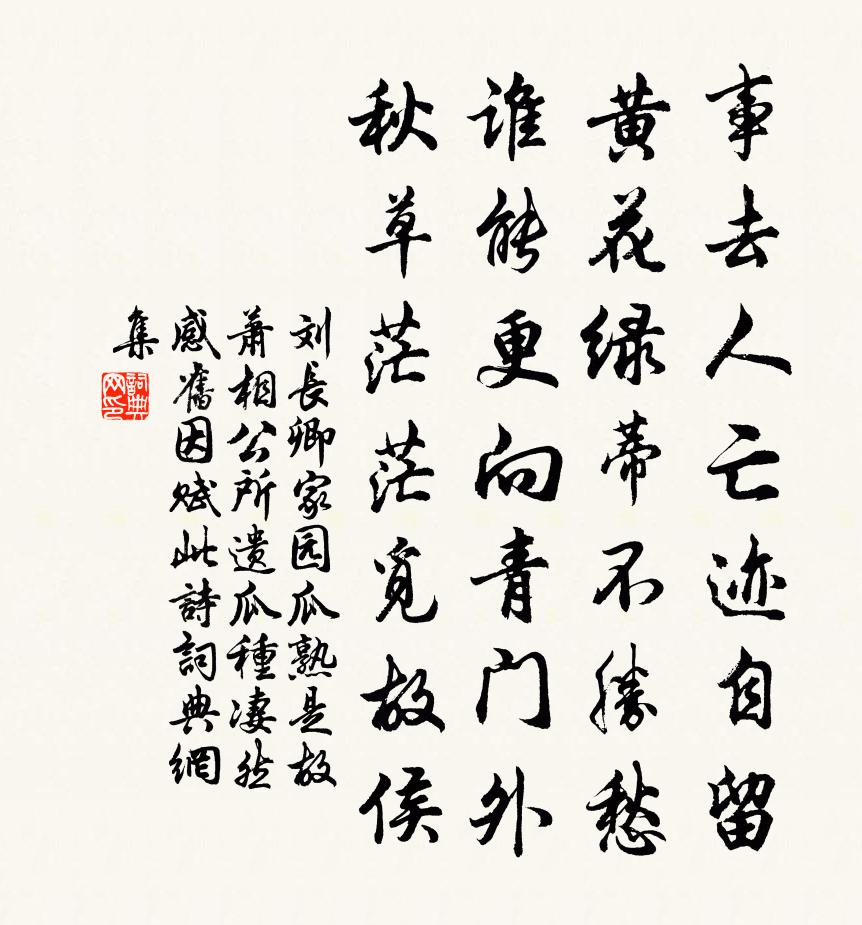 事去人亡迹自留
黄花绿蒂不勝愁
谁能更向青门外
秋草茫茫覓故侯
刘長卿家园瓜熟是故
萧相公所遗瓜種凄然
感舊因赋此詩詞典網
集
詞典
网印